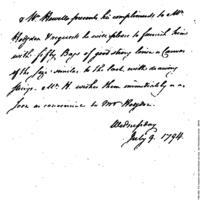 Mr. Howells presents his compliments to Mr.
Hodgson & requests he will please to furnish him
with fifty Bags of good strong linen or Canvas
of the size similar to the last, with drawing
strings. Mr. H. wishes them immediately or as
soon as convenient to Mr Hodgson.
Wednesday
July 9. 1794.